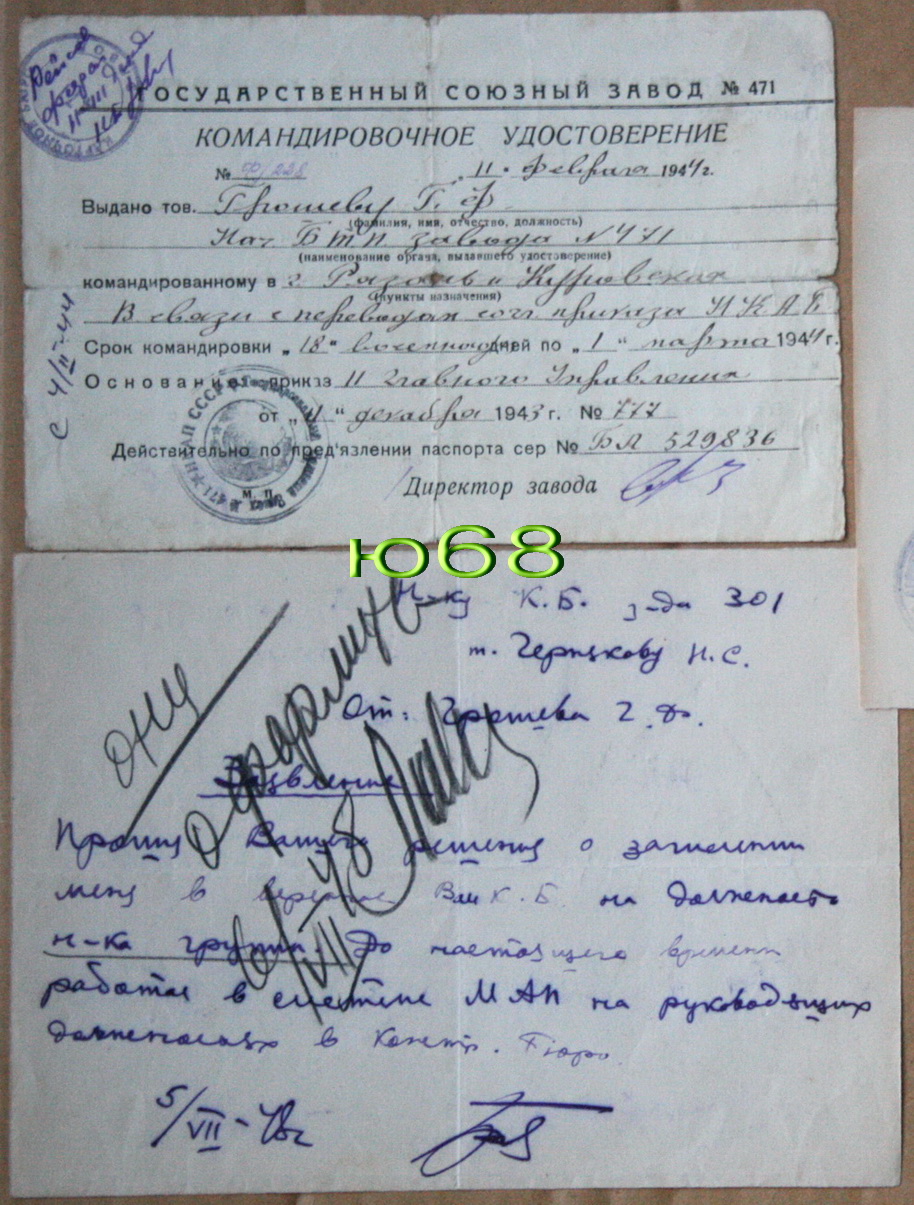 ГОСУДАРСТВЕННЫЙ СОЮЗНЫЙ ЗАВОД № 471
КОМАНДИРОВОЧНОЕ УДОСТОВЕРЕНИЕ
№ Ф/228 „11“ Февраля 1944г.
Выдано тов. Грошеву Г. Ф.
(фамилия, имя, отчество, должность)
Нач БТП завода N 471
(наименование органа, выдавшего удостоверение)
командированному в г. Рязань и Куровская
(пункты назначения)
В связи с переводом согл. приказа НКАП
Срок командировки „18“ дней по „1“ марта 1944 г.
Основание: приказ 11 Главного Управления
от „11“ декабря 1943 г. № 777
Действительно по пред'явлении паспорта сер № БЛ 529836
М. П.
Директор завода
С 4/II-44
ю68
Н-ку К.Б. з-да 301
т. Черикову Н.С.
От: Грошева Г.Ф.
Заявление
Прошу Вашего решения о зачислении
меня в К.Б. на должность
н-ка группы. До настоящего времени
работал в системе МАП на руководящих
должностях в Констр. Бюро.
5/VII-48г
ОНЦ
оформить